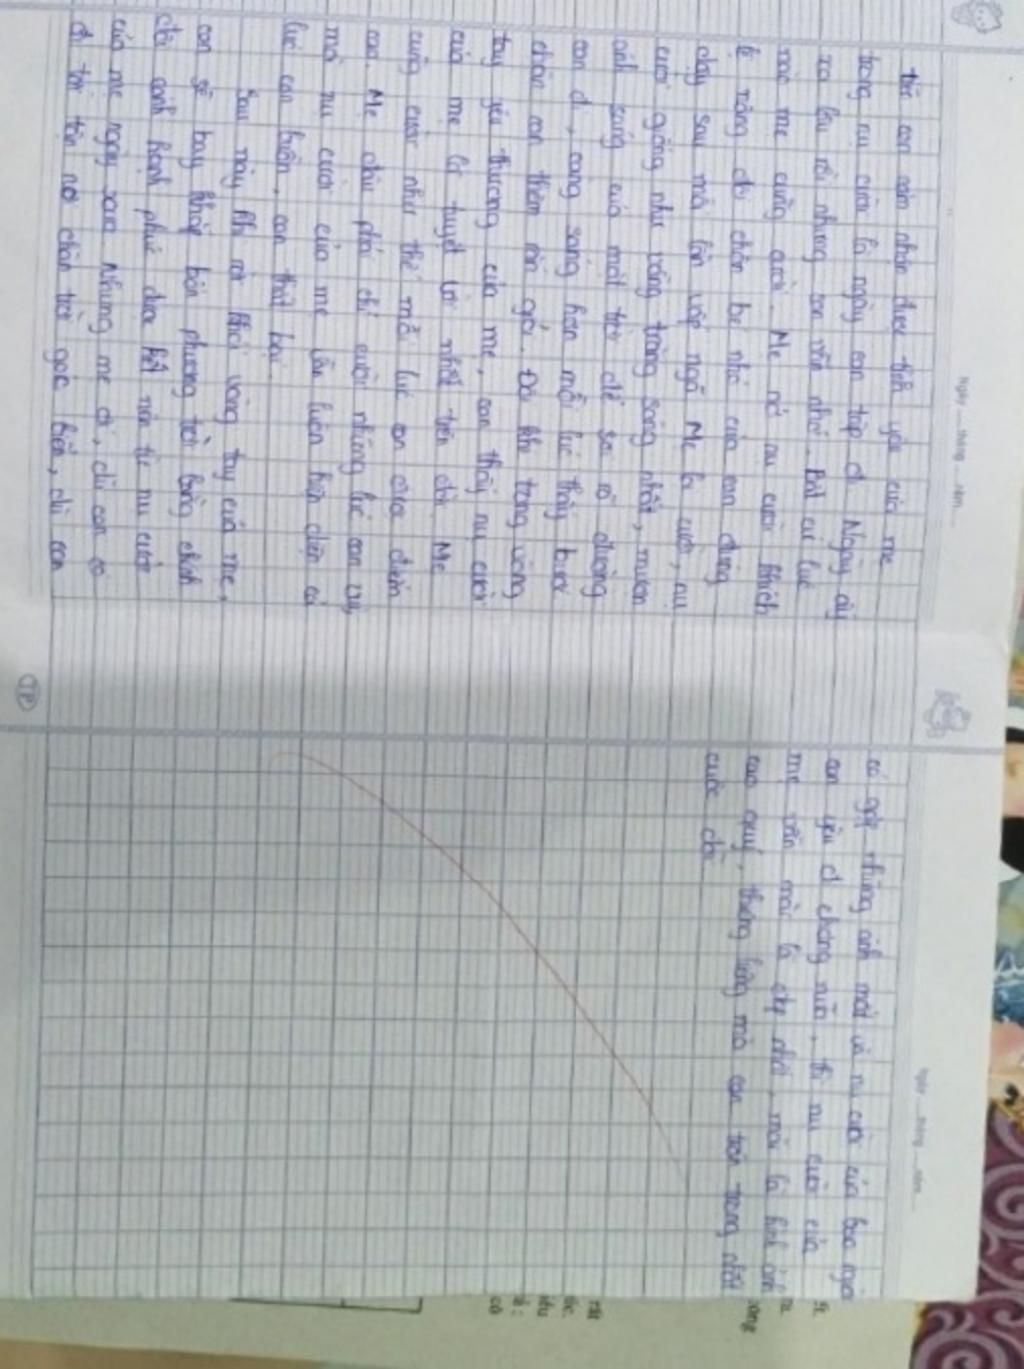 Ngày ... tháng ... năm ...
tức con cảm nhận được tình yêu của mẹ
trong nụ cười là ngày con tập đi. Ngày ấy
xa lâu rồi nhưng con vẫn nhớ. Bất cứ lúc
nào mẹ cũng cười. Mẹ nở nụ cười khích
lệ nâng đôi chân bé nhỏ của con đứng
dậy sau mỗi lần vấp ngã. Mẹ là cười, nụ
cười giống như vầng trăng sáng nhất, mượn
ánh sáng của mặt trời để soi rõ đường
con đi, càng sáng hơn mỗi lúc thấy bước
chân con thêm rắn giỏi. Đôi khi trong vòng
tay yêu thương của mẹ, con thấy nụ cười
của mẹ là tuyệt vời nhất trên đời. Mẹ
cũng cười như thế mỗi lúc con được điểm
cao. Mẹ đâu phải chỉ cười những lúc con vui,
mà nụ cười của mẹ luôn hiện diện cả
lúc con buồn, con thất bại.
Sau này khi rời khỏi vòng tay của mẹ,
con sẽ bay khắp bốn phương trời bằng chính
đôi cánh hạnh phúc được kết nên từ nụ cười
của mẹ ngày xưa. Nhưng mẹ ơi, dù con có
đi tới tận nơi chân trời góc biển, dù con
TP
Ngày ... tháng ... năm ...
có gặp những ánh mắt và nụ cười của bao người
con yêu đi chăng nữa, thì nụ cười của
mẹ vẫn mãi là đẹp nhất, mãi là hình ảnh
cao quý, thiêng liêng mà con trân trọng nhất
cuộc đời.